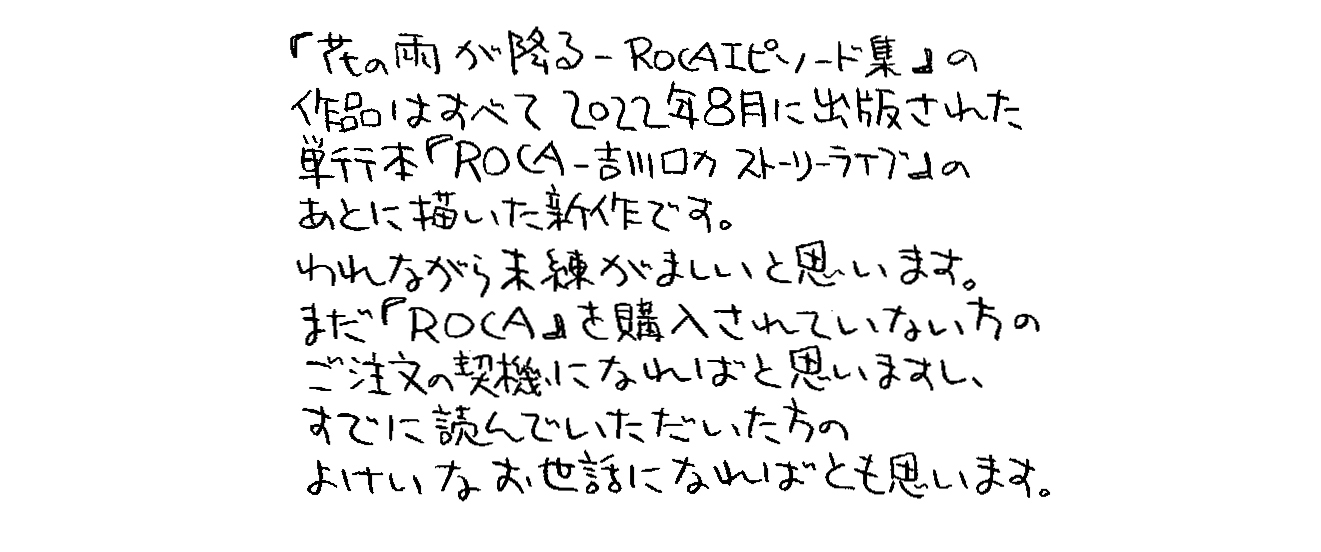 『花の雨が降る-ROCAエピソード集』の
作品はすべて2022年8月に出版された
単行本『ROCA-吉川ロカ ストーリーライブ』の
あとに描いた新作です。
われながら未練がましいと思います。
まだ『ROCA』を購入されていない方の
ご注文の契機になればと思いますし、
すでに読んでいただいた方の
よけいなお世話になればとも思います。